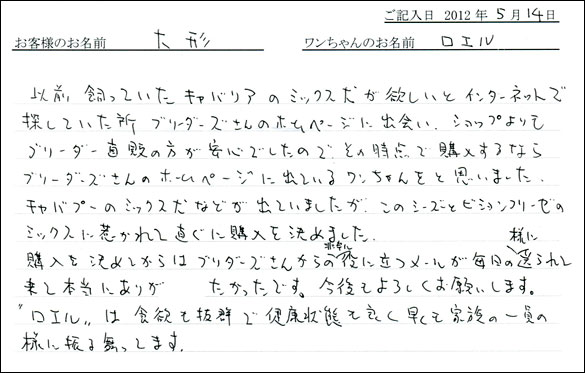 ご記入日 2012年5月14日
お客様のお名前 大形 ワンちゃんのお名前 ロエル
以前飼っていたキャバリアのミックス犬が欲しいとインターネットで
探していた所 ブリーダーズさんのホームページに出会い、ショップよりも
ブリーダー直販の方が安心でしたので、その時点で購入するなら
ブリーダーズさんのホームページに出ているワンちゃんをと思いました。
キャバプーのミックス犬などが出ていましたが、このシーズーとビションフリーゼの
ミックスに惹かれて直ぐに購入を決めました。
購入を決めてからはブリーダーズさんからの非常に役に立つメールが毎日の様に送られて
来て本当にありが たかったです。今後もよろしくお願いします。
"ロエル"は食欲も抜群で健康状態も良く早くも家族の一員の
様に振る舞ってます。